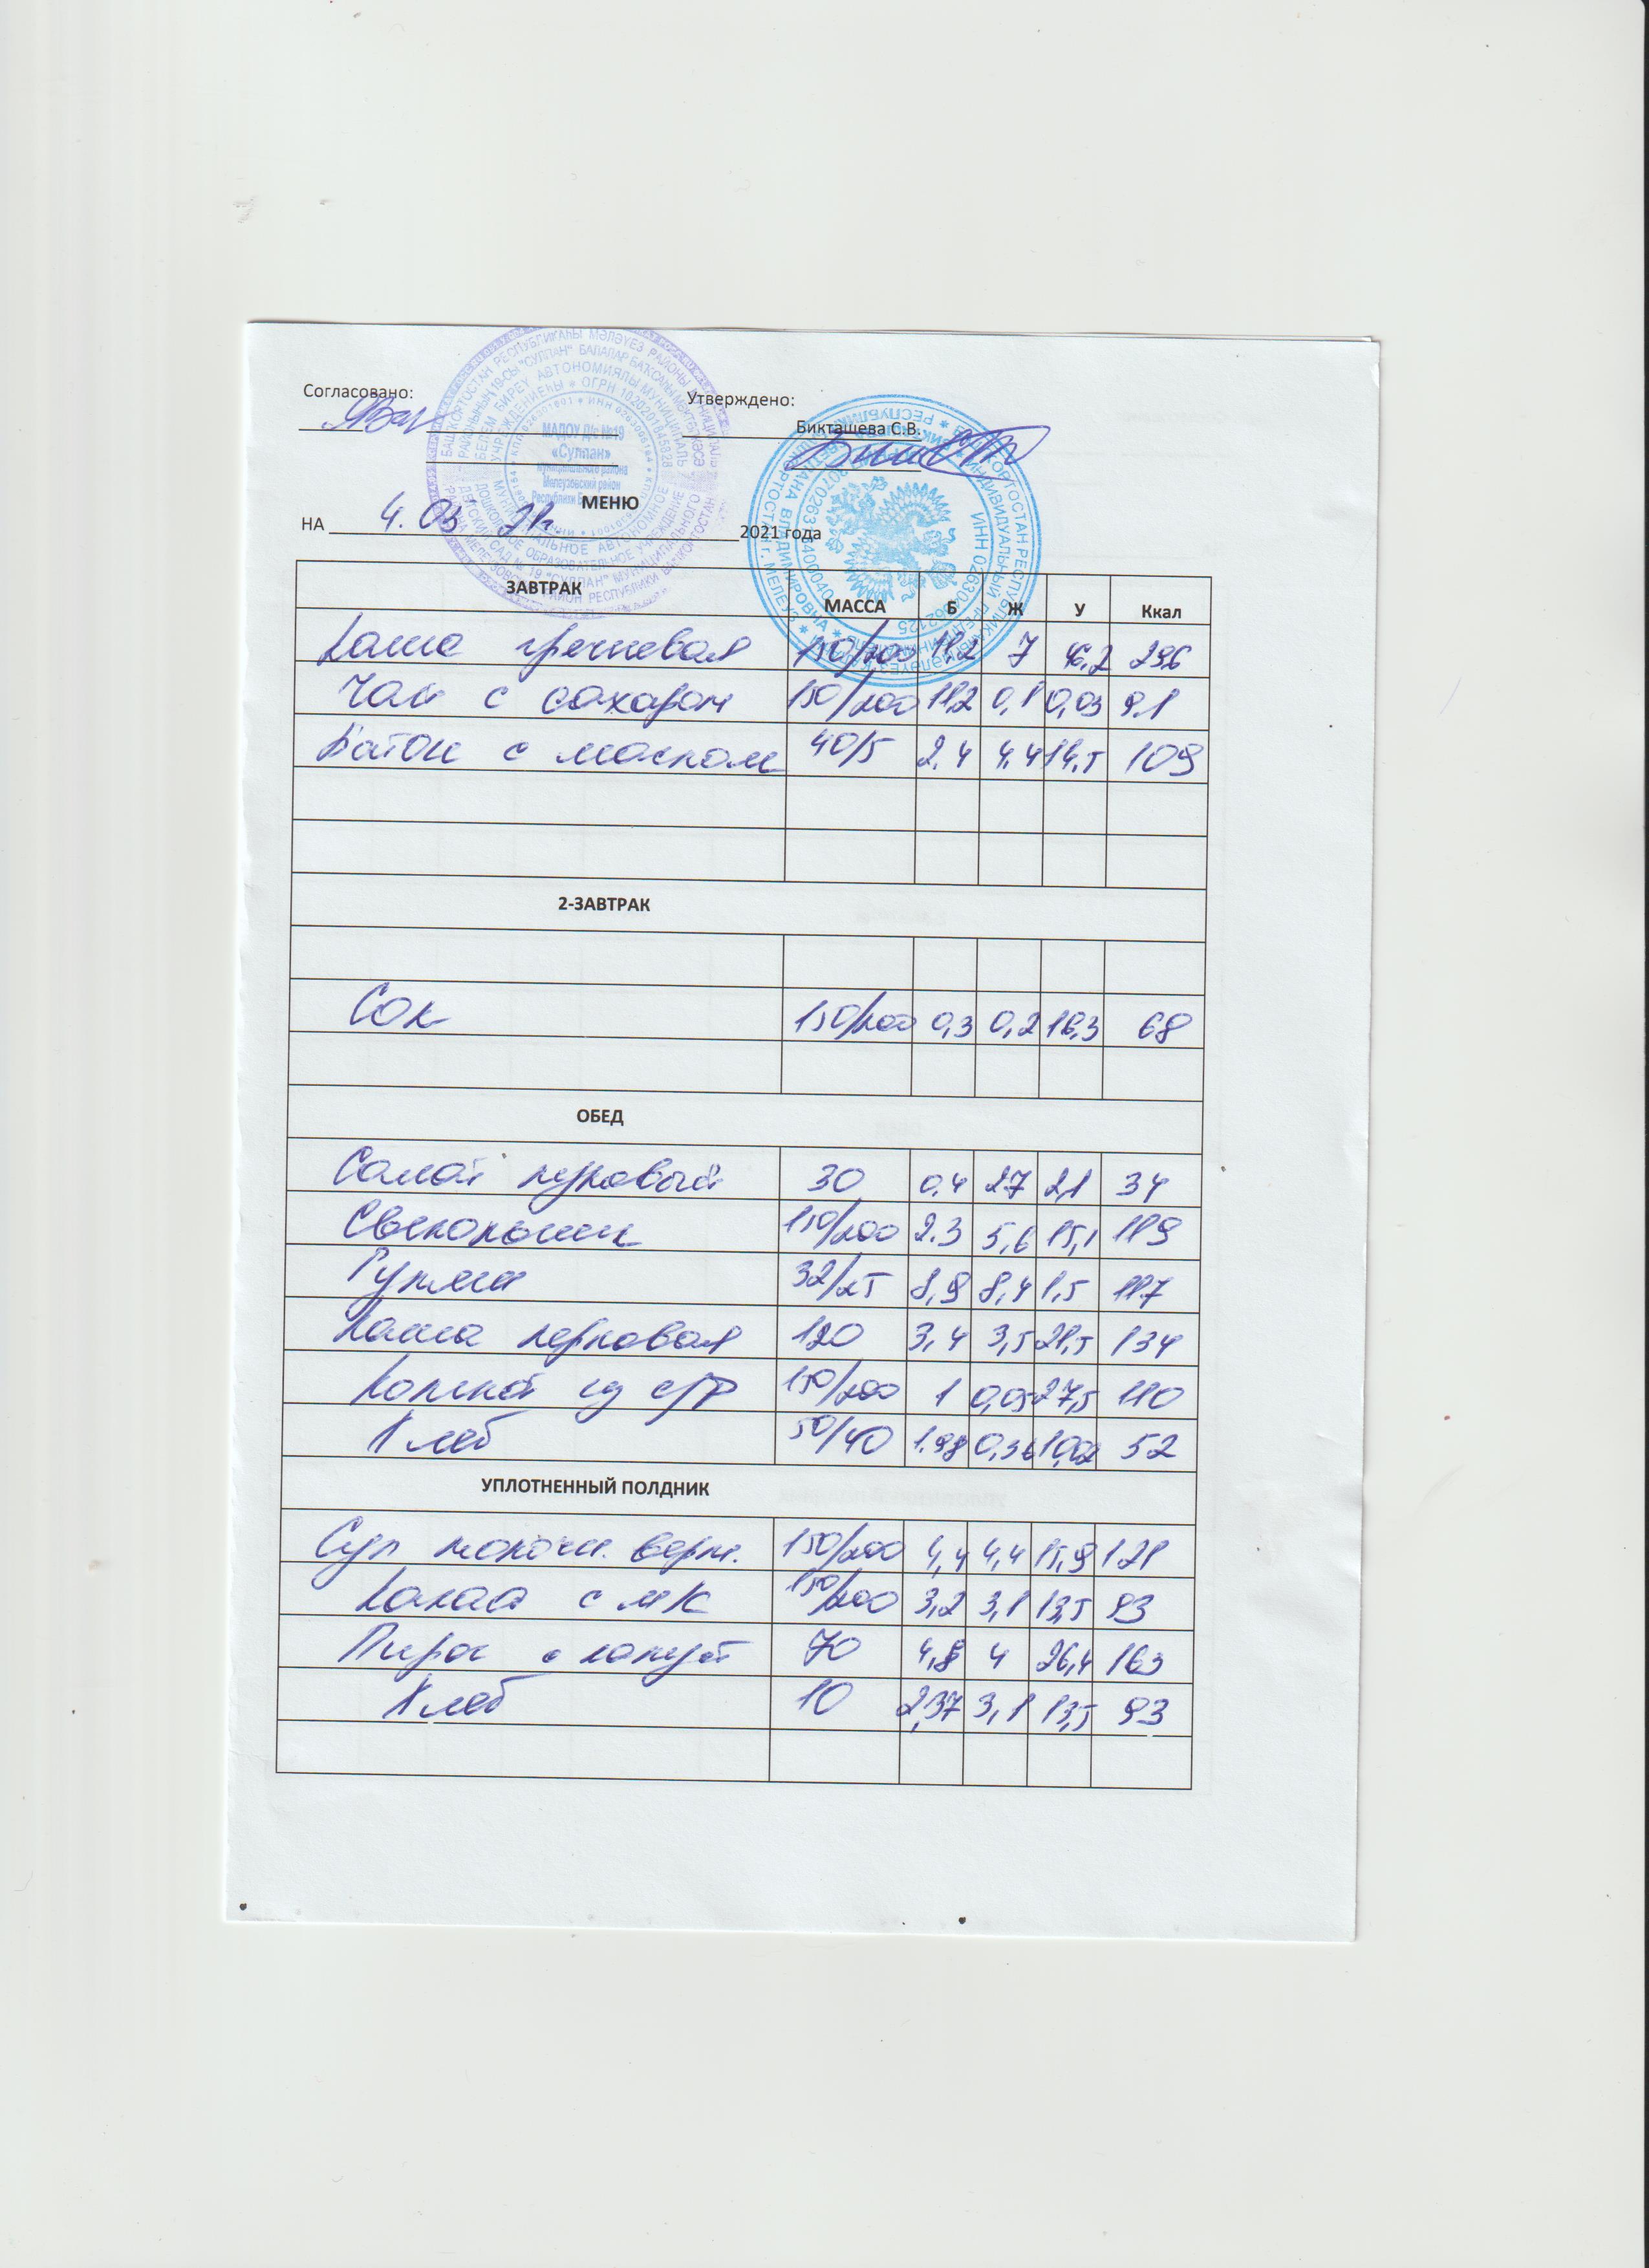 Согласовано:
Утверждено:
Бикташева С.В.
МАДОУ Д/с №19
«Сулпан»
муниципального района
Мелеузовский район
МЕНЮ
НА 4. 03 21г 2021 года
ЗАВТРАК МАССА Б Ж У Ккал
Каша гречневая 150/200 11,2 7 46,2 296
Чай с сахаром 150/200 11,2 0,1 0,03 9.1
Батон с маслом 40/5 2.4 4,4 14,5 109
2-ЗАВТРАК
Сок 150/200 0,3 0,2 16,3 68
ОБЕД
Салат луковый 30 0,4 27 2,1 34
Свекольник 150/200 2.3 5,6 15,1 119
Гуляш 32/25 8,9 8,4 1,5 117
Каша перловая 120 3,4 3,5 21,5 134
Компот из с/ф 150/200 1 0,05 27,5 110
Хлеб 50/40 1.98 0,36 52
УПЛОТНЕННЫЙ ПОЛДНИК
Суп молочн. верм. 150/200 4,4 4,4 15,9 121
Какао с мк 150/200 3,2 3,1 13,5 93
Пирог с капуст 70 4,8 4 26,4 163
Хлеб 10 2,37 3,1 13,5 93